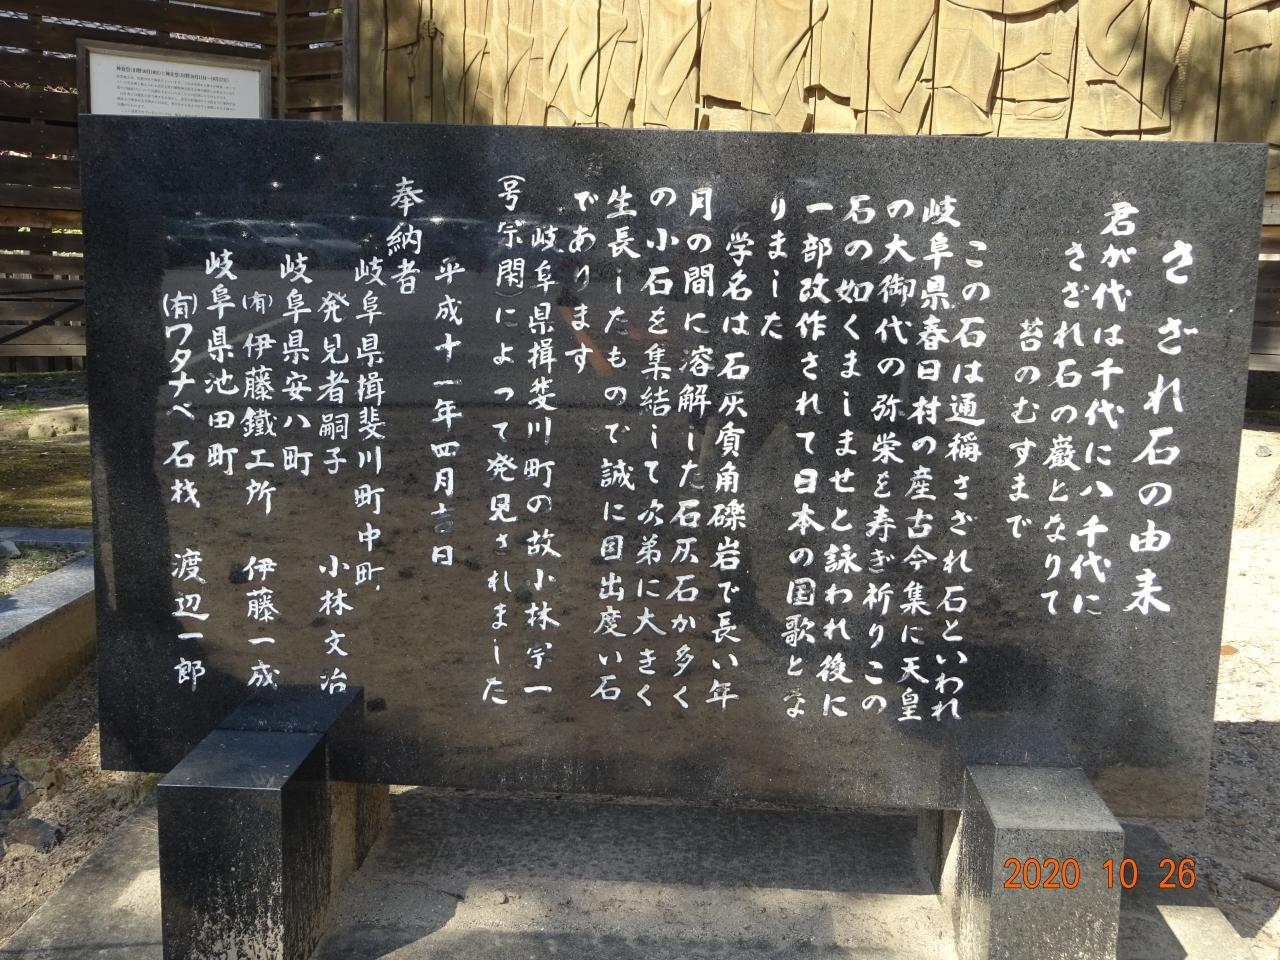 さざれ石の由来
君が代は千代に八千代に
さざれ石の巌となりて
苔のむすまで
この石は通稱さざれ石といわれ
岐阜県春日村の産古今集に天皇
の大御代の弥栄を寿ぎ祈りこの
石の如くましませと詠われ後に
一部改作されて日本の国歌とな
りました
学名は石灰質角礫岩で長い年
月の間に溶解した石灰石が多く
の小石を集結して次第に大きく
生長したもので誠に目出度い石
であります
岐阜県揖斐川町の故小林宗一
(号宗閑)によって発見されました
平成十一年四月吉日
奉納者
岐阜県揖斐川町中町
発見者嗣子 小林文治
岐阜県安八町
(有)伊藤鐵工所 伊藤一成
岐阜県池田町
(有)ワタナベ石材 渡辺一郎
2020 10 26